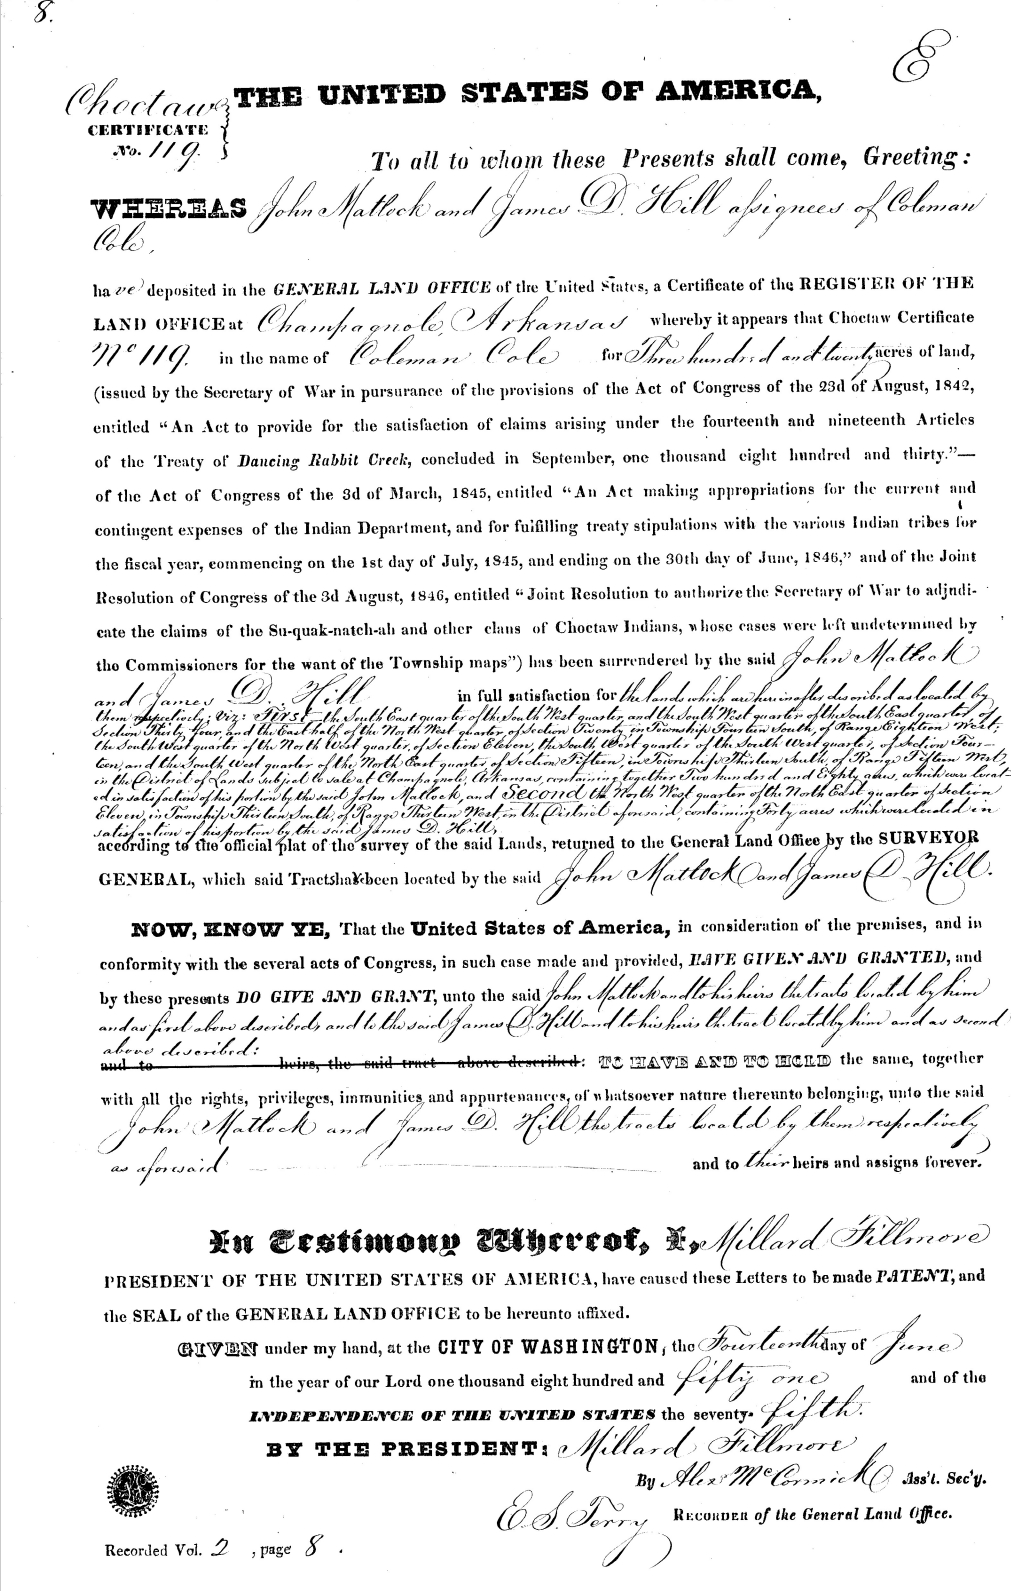 8.
E
Choctaw
THE UNITED STATES OF AMERICA,
CERTIFICATE
No. 119.
To all to whom these Presents shall come, Greeting:
WHEREAS John Matlock and James D. Hill assignees of Coleman
Cole,
ha ve deposited in the GENERAL LAND OFFICE of the United States, a Certificate of the REGISTER OF THE
LAND OFFICE at Champagnole, Arkansas whereby it appears that Choctaw Certificate
No 119. in the name of Coleman Cole for Three hundred and twenty acres of land,
(issued by the Secretary of War in pursurance of the provisions of the Act of Congress of the 23d of August, 1842,
entitled “An Act to provide for the satisfaction of claims arising under the fourteenth and nineteenth Articles
of the Treaty of Dancing Rabbit Creek, concluded in September, one thousand eight hundred and thirty.”—
of the Act of Congress of the 3d of March, 1845, entitled “An Act making appropriations for the current and
contingent expenses of the Indian Department, and for fulfilling treaty stipulations with the various Indian tribes for
the fiscal year, commencing on the 1st day of July, 1845, and ending on the 30th day of June, 1846,” and of the Joint
Resolution of Congress of the 3d August, 1846, entitled “Joint Resolution to authorize the Secretary of War to adjudi-
cate the claims of the Su-quak-natch-ah and other clans of Choctaw Indians, whose cases were left undetermined by
the Commissioners for the want of the Township maps”) has been surrendered by the said John Matlock
and James D. Hill in full satisfaction for the lands which are hereinafter described as located by
them respectively; viz: First the South East quarter of the South West quarter, and the South West quarter of the South East quarter of
Section Thirty four, and the East half of the North West quarter, of Section Twenty, in Township Fourteen South, of Range Eighteen West;
the South West quarter of the North West quarter, of Section Eleven, the South West quarter of the South West quarter, of Section Four-
teen, and the South West quarter of the North East quarter, of Section Fifteen, in Township Thirteen South, of Range Fifteen West,
in the District of Lands subject to sale at Champagnole, Arkansas, containing together Two hundred and Eighty acres, which were locat-
ed in satisfaction of his portion by the said John Matlock, and Second the North West quarter of the North East quarter of Section
Eleven, in Township Thirteen South, of Range Thirteen West, in the District aforesaid, containing Forty acres which were located in
satisfaction of his portion by the said James D. Hill,
according to the official plat of the survey of the said Lands, returned to the General Land Office by the SURVEYOR
GENERAL, which said Tracts have been located by the said John Matlock and James D. Hill.
NOW, KNOW YE, That the United States of America, in consideration of the premises, and in
conformity with the several acts of Congress, in such case made and provided, HAVE GIVEN AND GRANTED, and
by these presents DO GIVE AND GRANT, unto the said John Matlock and to his heirs the tracts located by him
and as first above described, and to the said James D. Hill and to his heirs the tract located by him and as second
above described:
and to heirs, the said tract above described: TO HAVE AND TO HOLD the same, together
with all the rights, privileges, immunities and appurtenances, of whatsoever nature thereunto belonging, unto the said
John Matlock and James D. Hill the tracts located by them respectively
as aforesaid and to their heirs and assigns forever.
In Testimony Whereof, I, Millard Fillmore
PRESIDENT OF THE UNITED STATES OF AMERICA, have caused these Letters to be made PATENT, and
the SEAL of the GENERAL LAND OFFICE to be hereunto affixed.
GIVEN under my hand, at the CITY OF WASHINGTON, the Fourteenth day of June
in the year of our Lord one thousand eight hundred and fifty one and of the
INDEPENDENCE OF THE UNITED STATES the seventy-fifth.
BY THE PRESIDENT: Millard Fillmore
By Alex McCormick Ass't. Sec'y.
E. S. Terry RECORDER of the General Land Office.
Recorded Vol. 2 , page 8 .